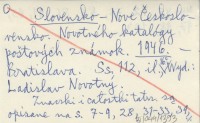 Slovensko – Nové Českoslo-
vensko. Novotného katalógy
poštových známok. 1946. –
Bratislava. Ss, 112, il. Wyd.
Ladislav Novotný.
Znaski i całostki tatrz. są
opisane na s. 7-9, 28,